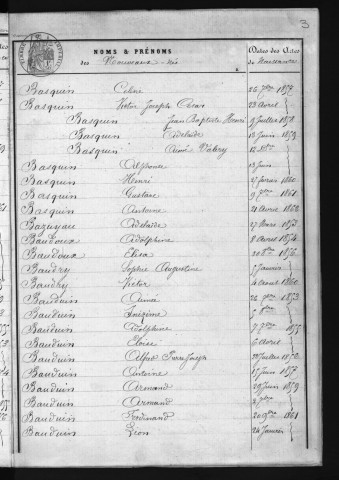 3
NOMS & PRÉNOMS
des Nouveaux-nés
Dates des Actes
de Naissance
Basquin Céline 26 7bre 1853
Basquin Victor Joseph César 23 Avril
Basquin Jean Baptiste Henri 9 Juillet 1858
Basquin Adelaïde 13 Juin 1859
Basquin Aimé Valery 12
Basquin Alphonse 13 Juin
Basquin Henri 27 février 1860
Basquin Gustave 9 7bre 1861
Basquin Antoine 21 Avril 1862
Bazuyau Adelaïde 27 Mars 1853
Baudoux Adolphine 8 Avril 1854
Baudoux Elisa 1856
Baudry Sophie Augustine Janvier
Baudry Victor 4 Août 1860
Bauduin Aimé 26 1853
Bauduin
Bauduin Adolphine 7bre 1855
Bauduin Eloïse 6 Avril
Bauduin Alfred Juillet 1856
Bauduin Antoine 15 Juin 1857
Bauduin Armand 29 Juin 1859
Bauduin Armand
Bauduin Ferdinand 20 9bre 1861
Bauduin Léon 24 Janvier